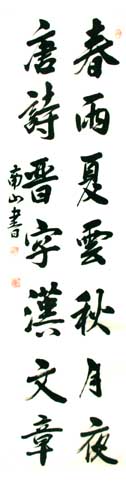 春雨夏雲秋月夜
唐詩晋字漢文章
南山書